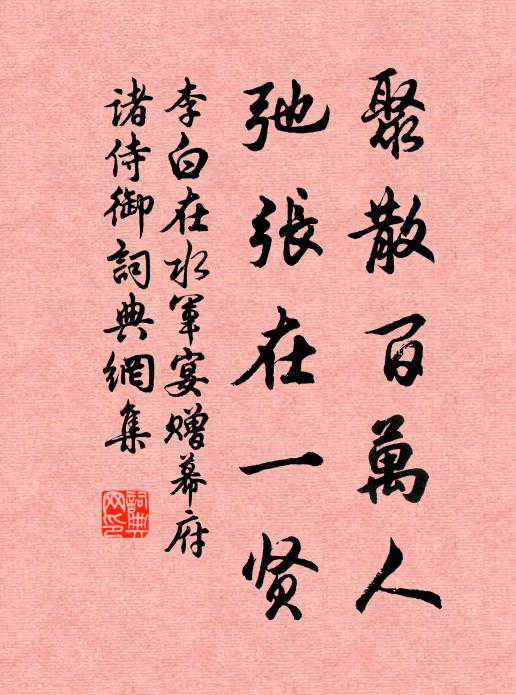 聚散百萬人
弛張在一贤
李白在水军宴赠幕府
诸侍御詞典網集
詞典
网印